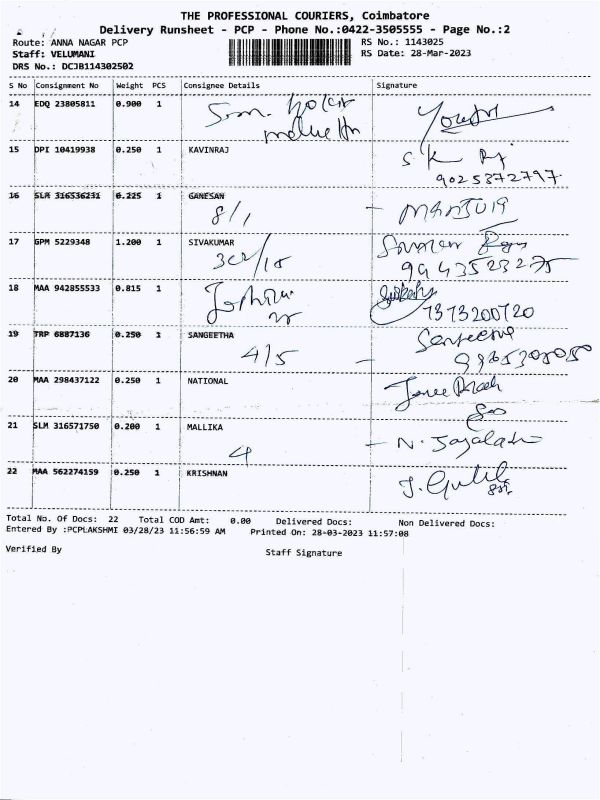 THE PROFESSIONAL COURIERS, Coimbatore
Delivery Runsheet - PCP - Phone No.:0422-3505555 - Page No.:2
Route: ANNA NAGAR PCP
RS No.: 1143025
Staff: VELUMANI
RS Date: 28-Mar-2023
DRS No.: DCJB114302502
S No Consignment No Weight PCS Consignee Details Signature
14 EDQ 23805811 0.900 1
15 DPI 10419938 0.250 1 KAVINRAJ
9025372797
16 SLM 316536231 0.225 1 GANESAN
8/1
17 GPM 5229348 1.200 1 SIVAKUMAR
9943523275
18 MAA 942855533 0.815 1
7373200720
19 TRP 6887136 0.250 1 SANGEETHA
4/5
20 MAA 298437122 0.250 1 NATIONAL
21 SLM 316571750 0.200 1 MALLIKA
4
22 MAA 562274159 0.250 1 KRISHNAN
Total No. Of Docs: 22 Total COD Amt: 0.00 Delivered Docs: Non Delivered Docs:
Entered By :PCPLAKSHMI 03/28/23 11:56:59 AM Printed On: 28-03-2023 11:57:08
Verified By
Staff Signature